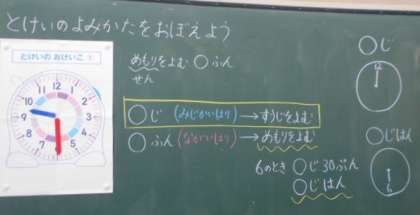 とけいのよみかたをおぼえよう
とけいの おけいこ 1
めもりをよむ ○ふん
せん
○じ (みじかいはり) → すうじをよむ
○ふん (ながいはり) → めもりをよむ
6のとき ○じ30ぷん
○じはん
○じ
12
○じはん
6